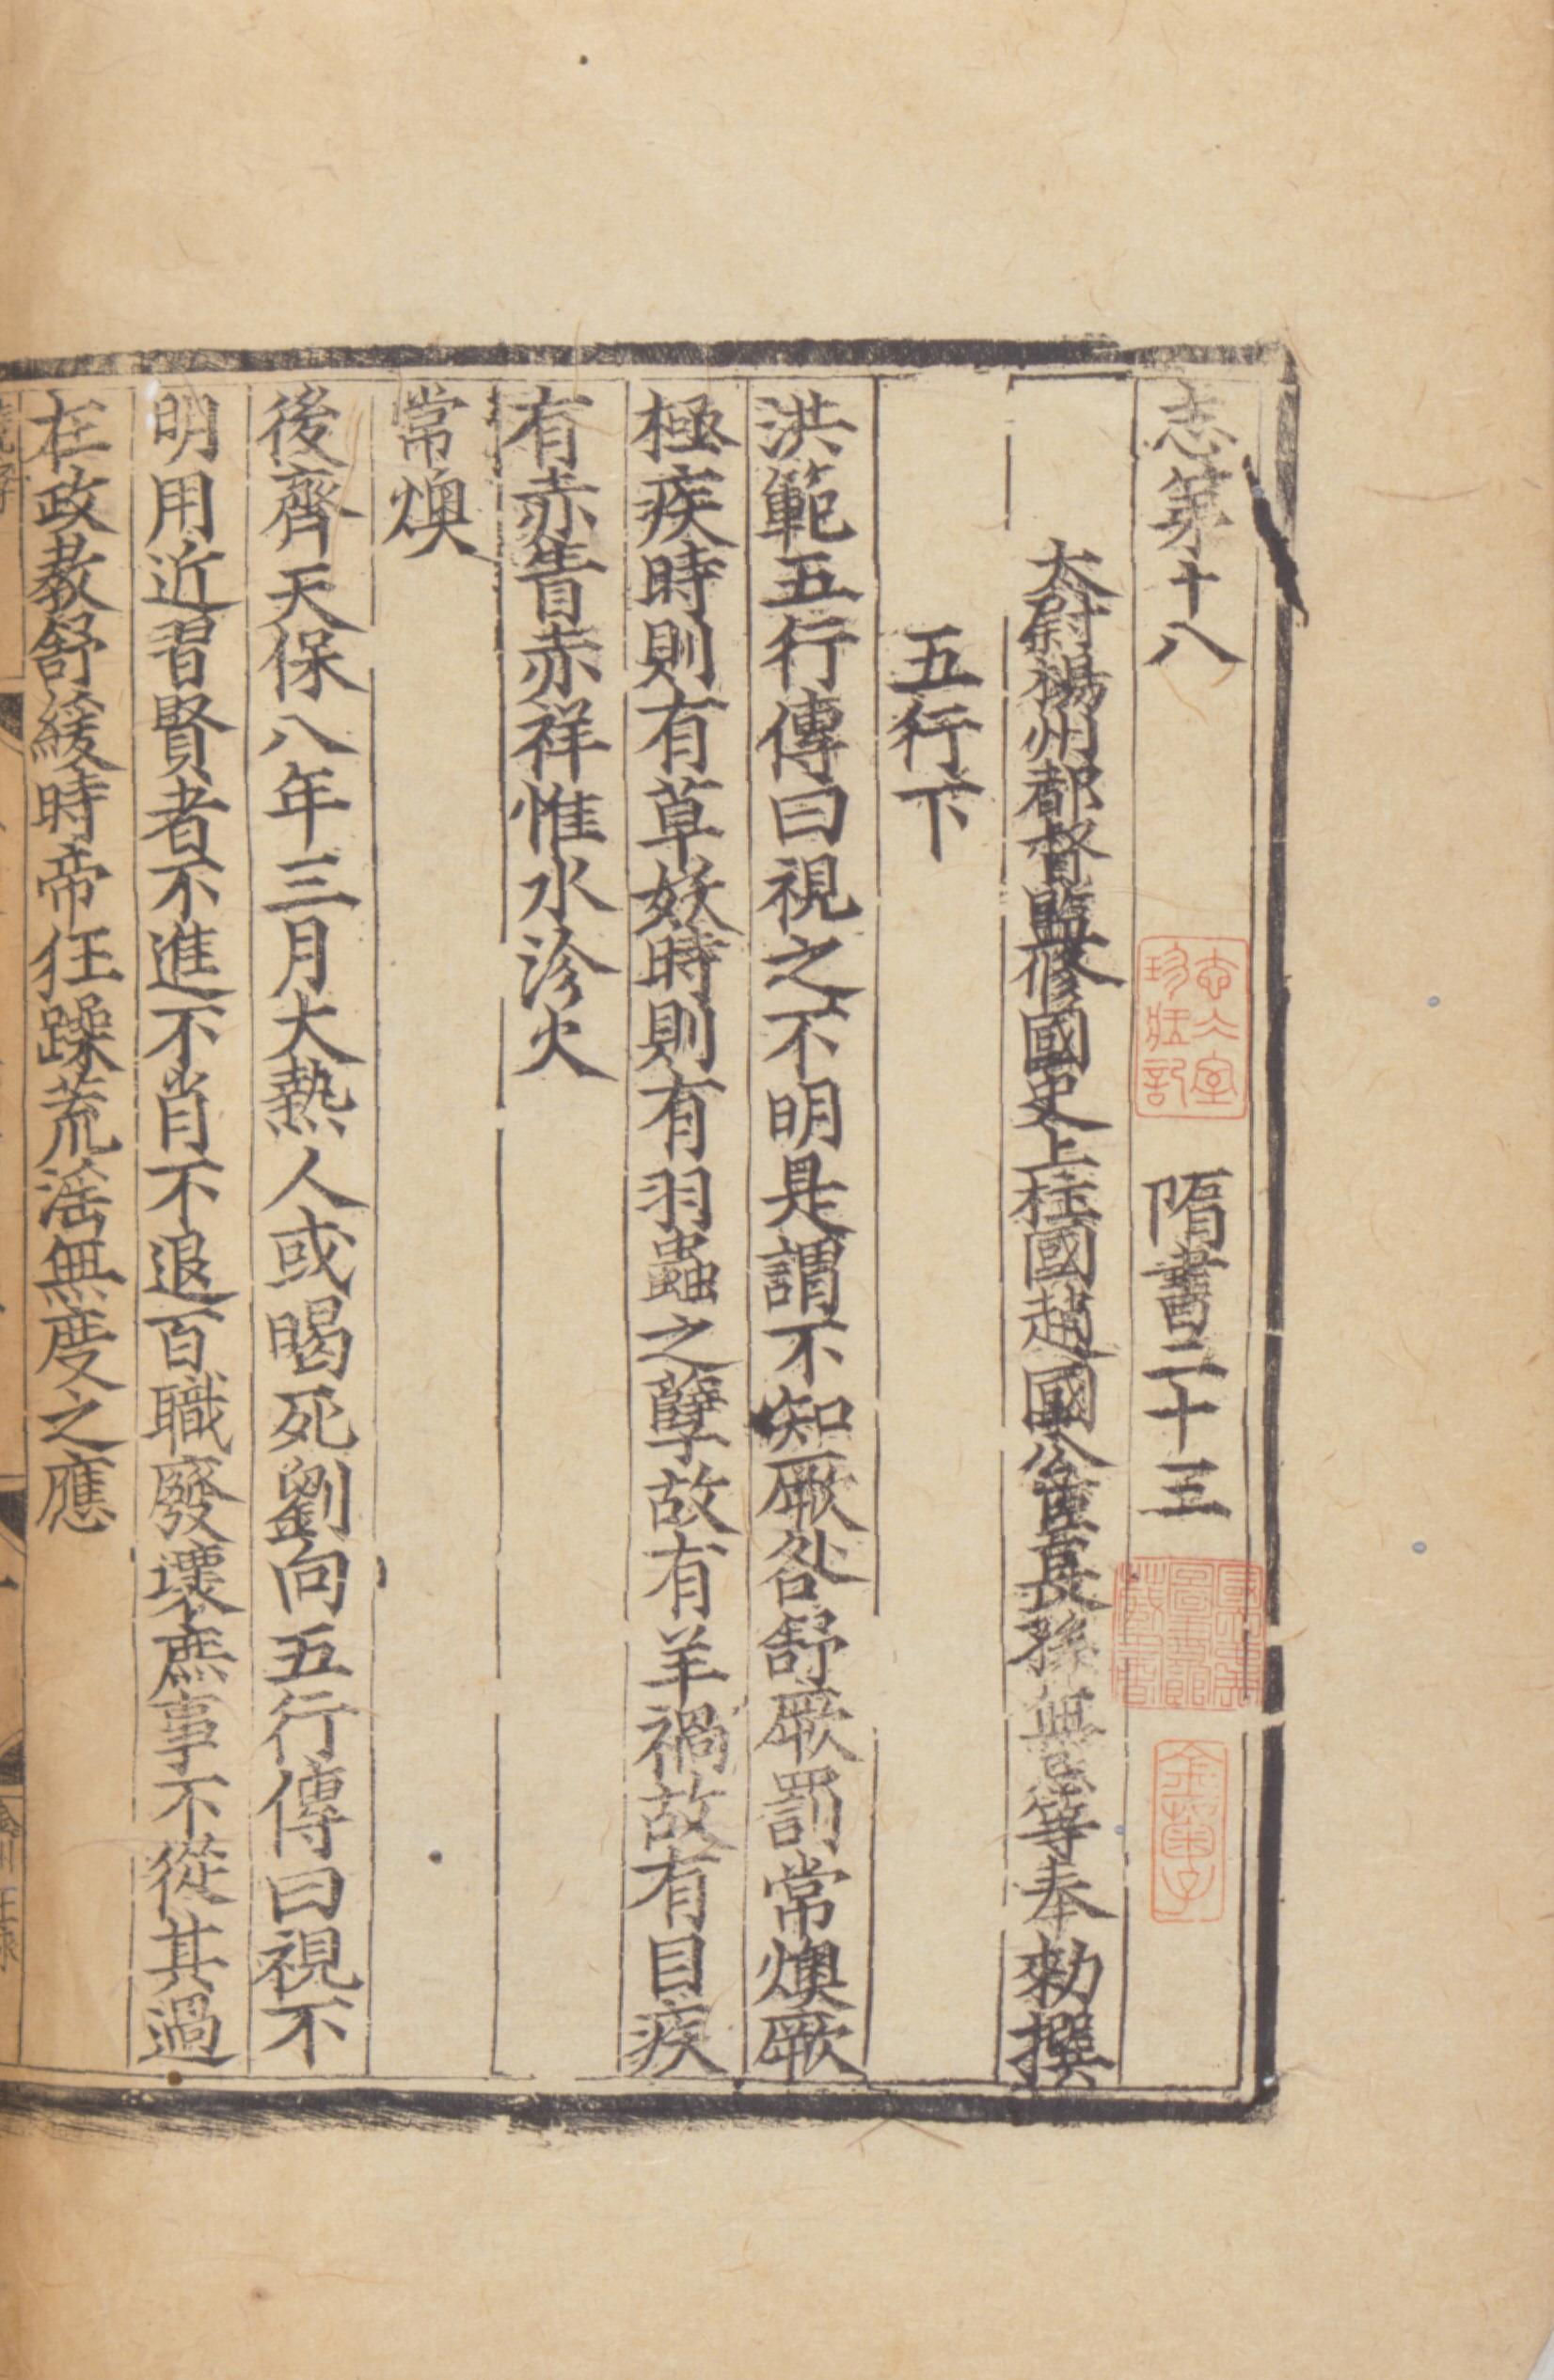 志第十八 隋書二十三
太尉揚州都督監修國史上柱國趙國公臣長孫無忌等奉敕撰
五行下
洪範五行傳曰視之不明是謂不知厥咎舒厥罰常燠厥
極疾時則有草妖時則有羽蟲之孽故有羊禍故有目疾
有赤眚赤祥惟水沴火
常燠
後齊天保八年三月大熱人或暍死劉向五行傳曰視不
明用近習賢者不進不肖不退百職廢壞庶事不從其過
在政教舒緩時帝狂躁荒淫無度之應